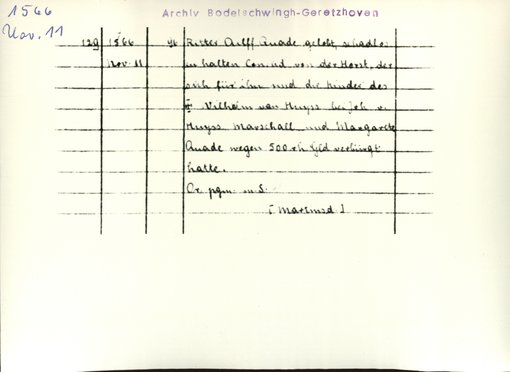 1566
Nov. 11
Archiv Bodelschwingh-Geretzhoven
129 1566 96 Ritter Adlff Quade gelobt, schadlos
Nov. 11 zu halten Conrad von der Horst, der
sich für ihn und die Kinder des
Wilhelm van Huyss bei Joh. v.
Huyss Marschall und Margarete
Quade wegen 500 rh Gld verbürgt
hatte.
Or. pgm. m. S.